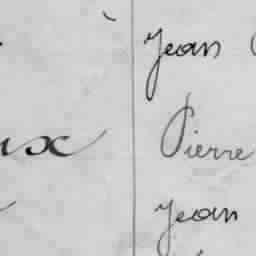 Jean
ux Pierre
Jean